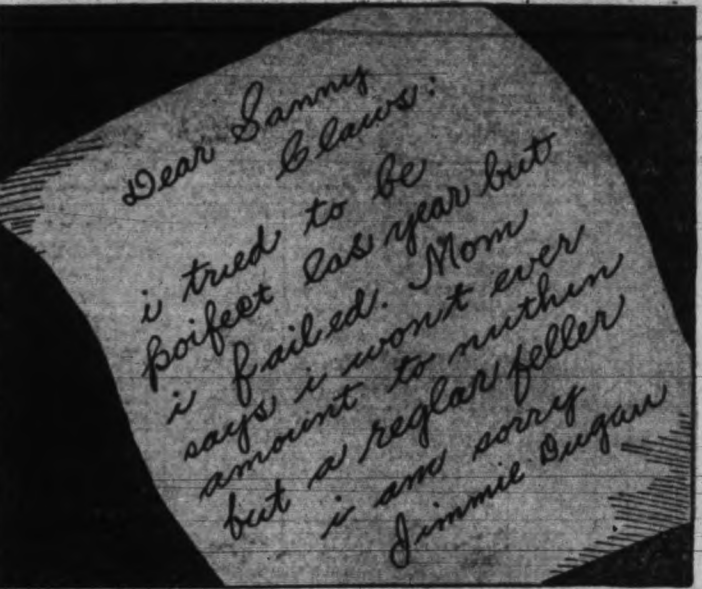 Dear Sanny
Claws:
i tried to be
poifect las year but
i failed. Mom
says i wont ever
amount to nuthin
but a reglar feller
i am sorry
Jimmie Dugan